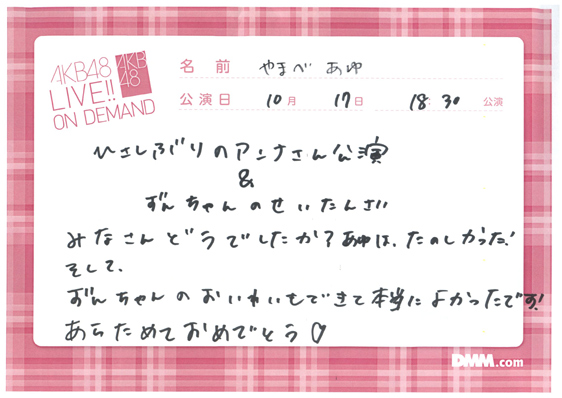 AKB48
LIVE!!
ON DEMAND
AKB
48
名前 やまべ あゆ
公演日 10月 17日 18:30 公演
ひさしぶりのアンナさん公演
&
ずんちゃんのせいたんさい
みなさんどうでしたか?あゆは、たのしかった!
そして、
ずんちゃんのおいわいもできて本当によかったです!
あらためておめでとう♡
DMM.com